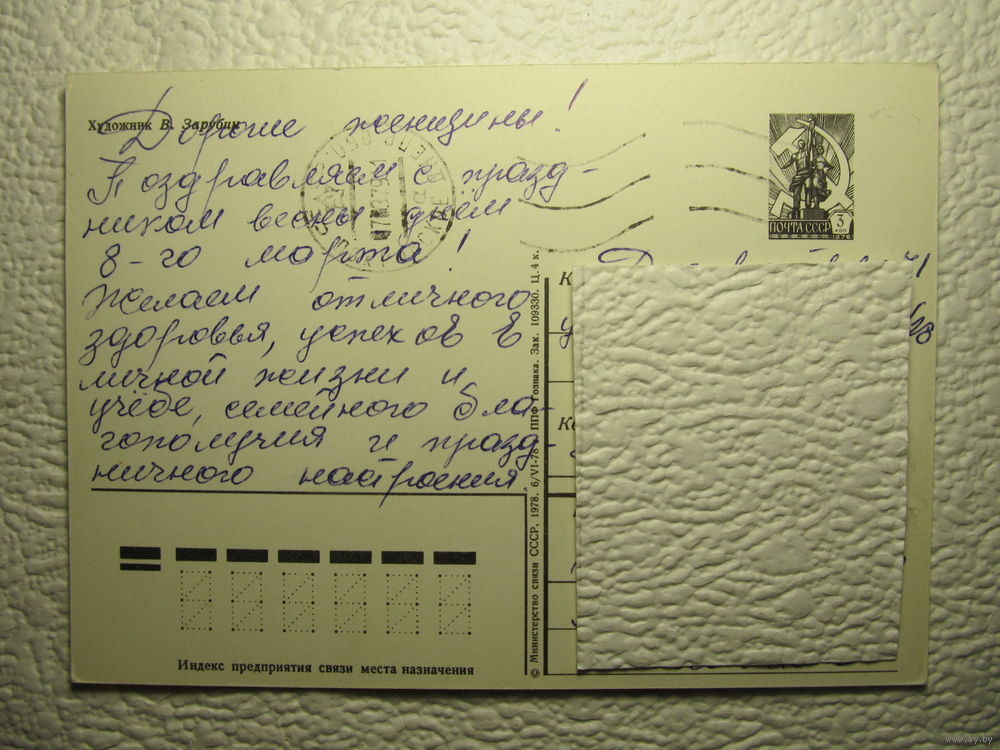 Художник В. Зарубин
Дорогие женщины!
Поздравляем с празд-
ником весны днём
8-го марта!
Желаем отличного
здоровья, успехов в
личной жизни и
учёбе, семейного бла-
гополучия и празд-
ничного настроения.
ПОЧТА СССР 3 КОП
1976
К
© Министерство связи СССР, 1978. 6/VI-78 ППФ Гознака. Зак. 109330. Ц. 4 к.
Индекс предприятия связи места назначения
www.ay.by